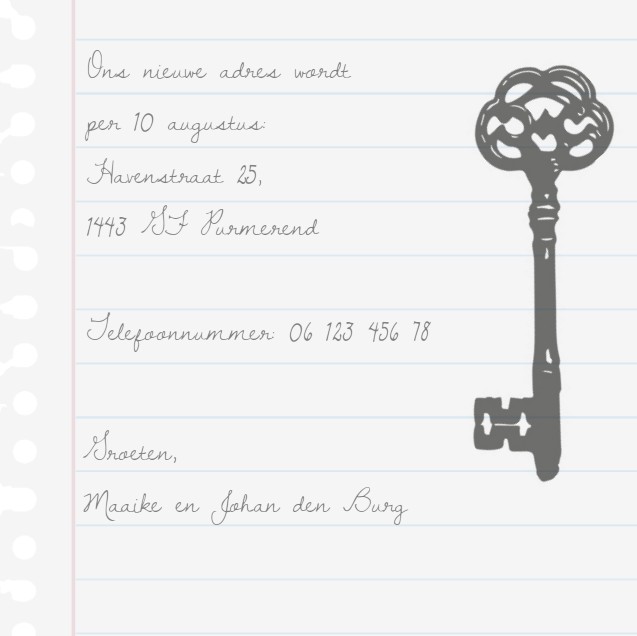 Ons nieuwe adres wordt
per 10 augustus:
Havenstraat 25,
1443 GF Purmerend
Telefoonnummer: 06 123 456 78
Groeten,
Maaike en Johan den Burg